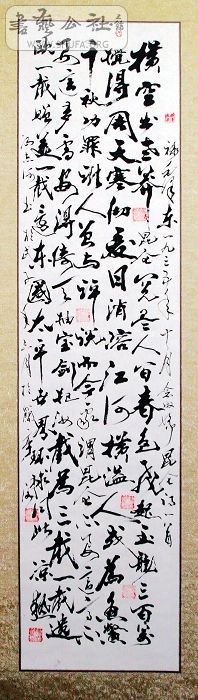 書艺公社
WWW.SHUFA.ORG
毛泽东一九三五年十月念奴娇昆仑词一首
横空出世莽昆仑阅尽人间春色飞起玉龙三百万
搅得周天寒彻夏日消溶江河横溢人或为鱼鳖
千秋功罪谁人曾与评说而今我谓昆仑不要这高不
要这多雪安得倚天抽宝剑把汝裁为三截一截遗
欧一截赠美一截还东国太平世界环球同此凉热